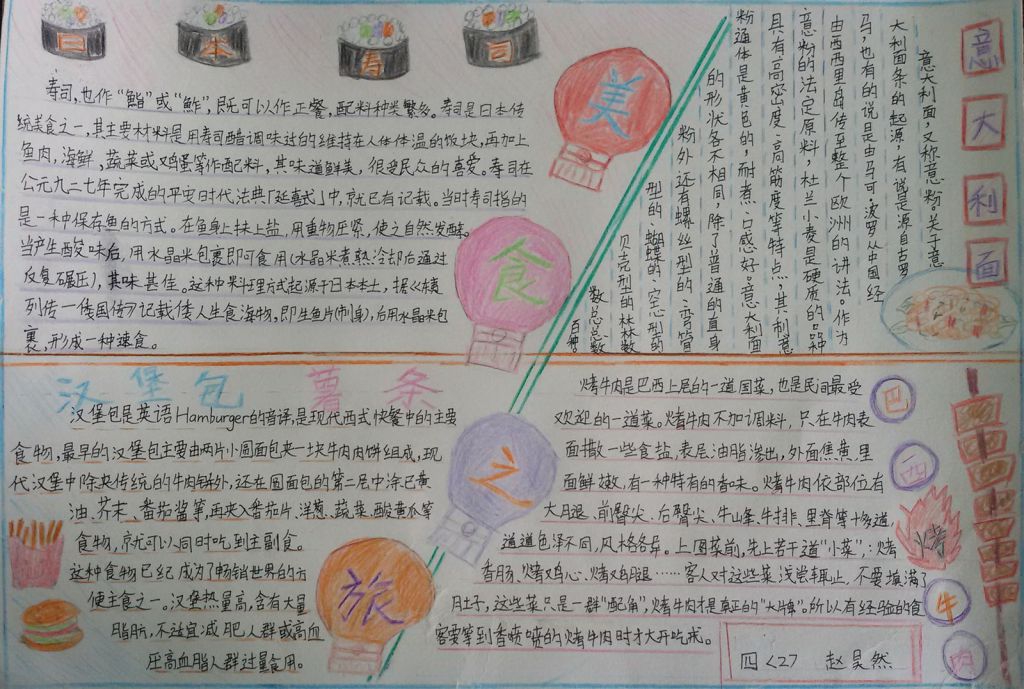 日本寿司
寿司,也作“鮨”或“鮓”,既可以作正餐,配料种类繁多。寿司是日本传
统美食之一,其主要材料是用寿司醋调味过的维持在人体体温的饭块,再加上
鱼肉,海鲜,蔬菜或鸡蛋等作配料,其味道鲜美,很受民众的喜爱。寿司在
公元九二七年完成的平安时代法典「延喜式」中,就已有记载。当时寿司指的
是一种保存鱼的方式。在鱼身上抹上盐,用重物压紧,使之自然发酵。
当产生酸味后,用水晶米包裹即可食用(水晶米煮熟冷却后通过
反复碾压),其味甚佳。这种料理方式起源于日本本土,据《东夷
列传一倭国传》记载倭人生食海物,即生鱼片(刺身),后用水晶米包
裹,形成一种速食。
美食之旅
意大利面
意大利面,又称意粉。关于意
大利面条的起源,有说是源自古罗
马,也有的说是由马可·波罗从中国经
由西西里岛传至整个欧洲的讲法。作为
意粉的法定原料,杜兰小麦是最硬质的品种
具有高密度、高筋度等特点,其制意
粉通体是黄色的,耐煮、口感好。意大利面
的形状各不相同,除了普通的直身
粉外还有螺丝型的、弯管
型的、蝴蝶的、空心型的
贝壳型的林林
总总数
百种
汉堡包 薯条
汉堡包是英语Hamburger的音译,是现代西式快餐中的主要
食物,最早的汉堡包主要由两片小圆面包夹一块牛肉肉饼组成,现
代汉堡中除夹传统的牛肉饼外,还在圆面包的第二层中涂已黄
油、芥末、番茄酱等,再夹入番茄片、洋葱、蔬菜、酸黄瓜等
食物,就可以同时吃到主副食。
这种食物已经成为了畅销世界的方
便主食之一。汉堡热量高,含有大量
脂肪,不适宜减肥人群或高血
压高血脂人群过量食用。
巴西烤牛肉
烤牛肉是巴西上层的一道国菜,也是民间最受
欢迎的一道菜。烤牛肉不加调料,只在牛肉表
面撒一些食盐,表层油脂渗出,外面焦黄,里
面鲜嫩,有一种特有的香味。烤牛肉依部位有
大月退、前臀尖、后臀尖、牛峰、牛排、里脊等十多道,
道道色泽不同,风格各异。上国菜前,先上若干道“小菜”,:烤
香肠、烤鸡心、烤鸡腿……客人对这些菜浅尝辄止,不要填满了
肚子,这些菜只是一群“配角”,烤牛肉才是真正的“大牌”。所以有经验的食
客要等到香喷喷的烤牛肉时才大开吃戒。
四<27 赵昊然